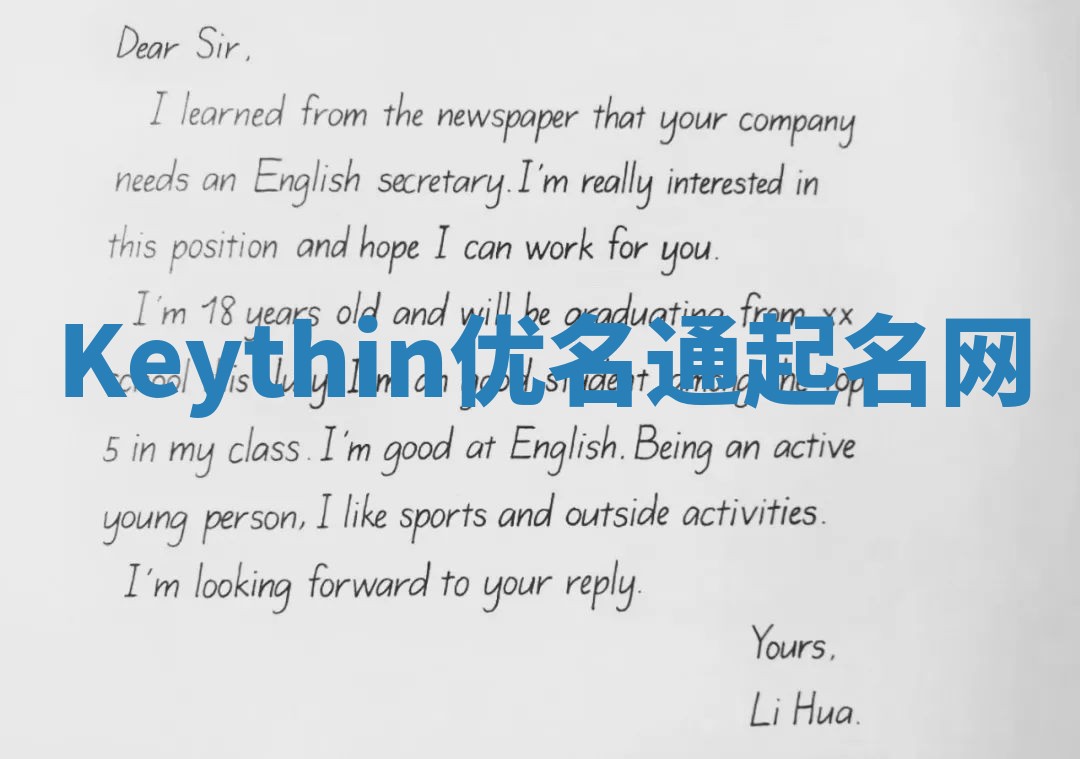 Dear Sir,
I learned from the newspaper that your company
needs an English secretary. I'm really interested in
this position and hope I can work for you.
I'm 18 years old and will be graduating from xx
Keythin优名通起名网
school this July. I'm an good student, among the top
5 in my class. I'm good at English. Being an active
young person, I like sports and outside activities.
I'm looking forward to your reply.
Yours,
Li Hua.